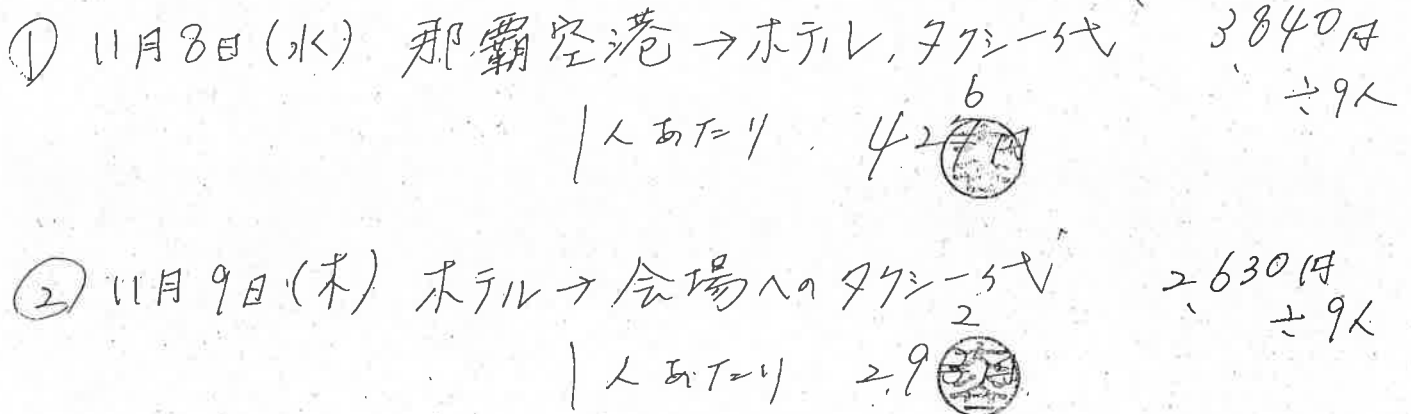 ① 11月8日(水) 那覇空港→ホテル、タクシー代 3,840円
÷9人
6
1人あたり 427円
② 11月9日(木) ホテル→会場へのタクシー代 2,630円
÷9人
2
1人あたり 293円